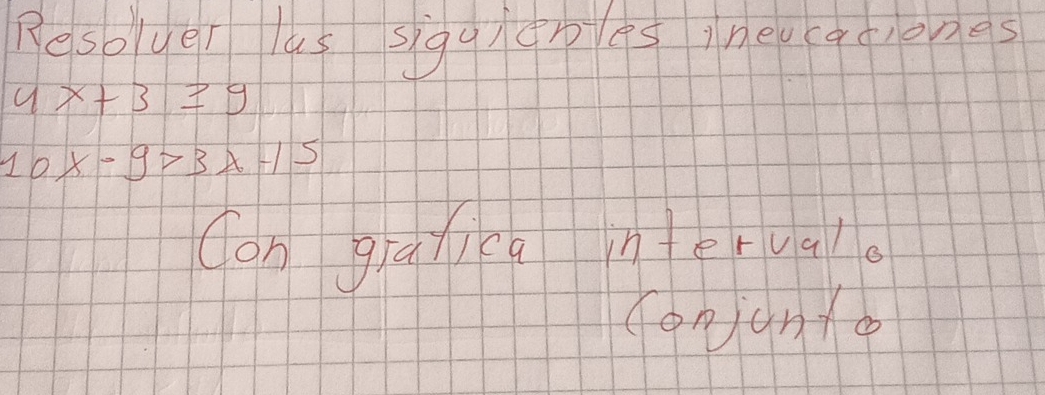 Resolver las siguientes inecuaciones
4x+3 ≥ 9
10x-9>3x-15
Con grafica intervalo
Conjunto